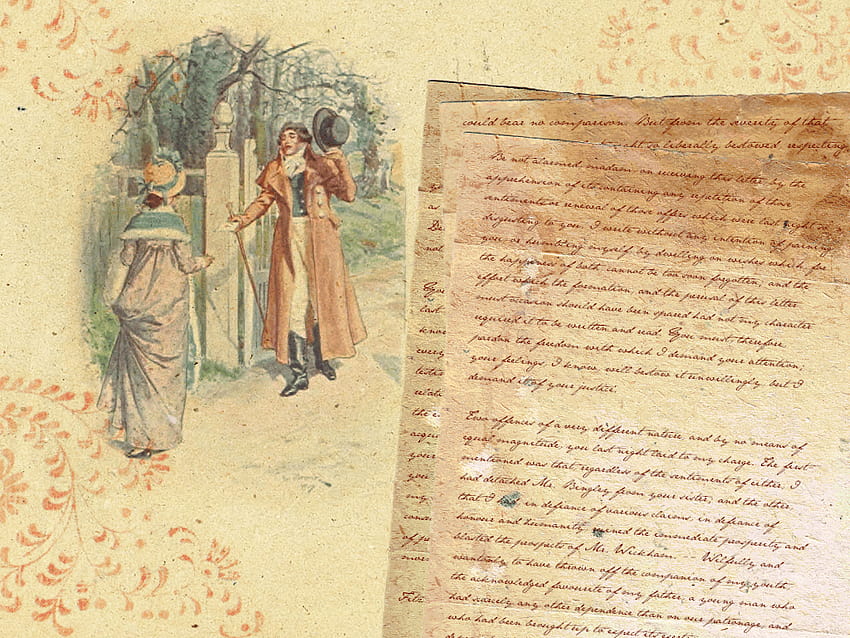 could bear no comparison. But from the severity of that
ght so liberally bestowed, respecting
Be not alarmed, madam, on receiving this letter, by the
apprehension of its containing any repetition of those
sentiments or renewal of those offers which were last night so
disgusting to you. I write without any intention of paining
you, or humbling myself, by dwelling on wishes which, for
the happiness of both, cannot be too soon forgotten; and the
effort which the formation, and the perusal of this letter
must occasion, should have been spared had not my character
required it to be written and read. You must, therefore,
pardon the freedom with which I demand your attention;
your feelings, I know, will bestow it unwillingly, but I
demand it of your justice.
Two offences of a very different nature, and by no means of
equal magnitude, you last night laid to my charge. The first
mentioned was, that, regardless of the sentiments of either, I
had detached Mr. Bingley from your sister, and the other,
that I had, in defiance of various claims, in defiance of
honour and humanity, ruined the immediate prosperity and
blasted the prospects of Mr. Wickham. -- Wilfully and
wantonly to have thrown off the companion of my youth,
the acknowledged favourite of my father, a young man who
had scarcely any other dependence than on our patronage, and
who had been brought up to expect its exertion
not
You
must
know
every
the
your
my
of
Fitz